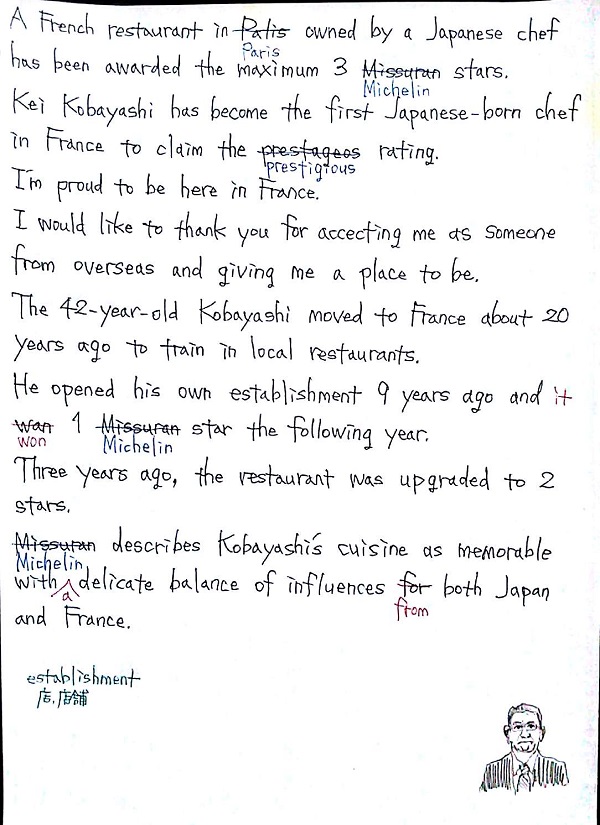 A French restaurant in Patis owned by a Japanese chef
Paris
has been awarded the maximum 3 Missuran stars.
Michelin
Kei Kobayashi has become the first Japanese-born chef
in France to claim the prestageos rating.
prestigious
I'm proud to be here in France.
I would like to thank you for accecting me as someone
from overseas and giving me a place to be.
The 42-year-old Kobayashi moved to France about 20
years ago to train in local restaurants.
He opened his own establishment 9 years ago and it
wan 1 Missuran star the following year.
won Michelin
Three years ago, the restaurant was upgraded to 2
stars.
Missuran describes Kobayashi's cuisine as memorable
Michelin
with delicate balance of influences for both Japan
a from
and France.
establishment
店,店舗